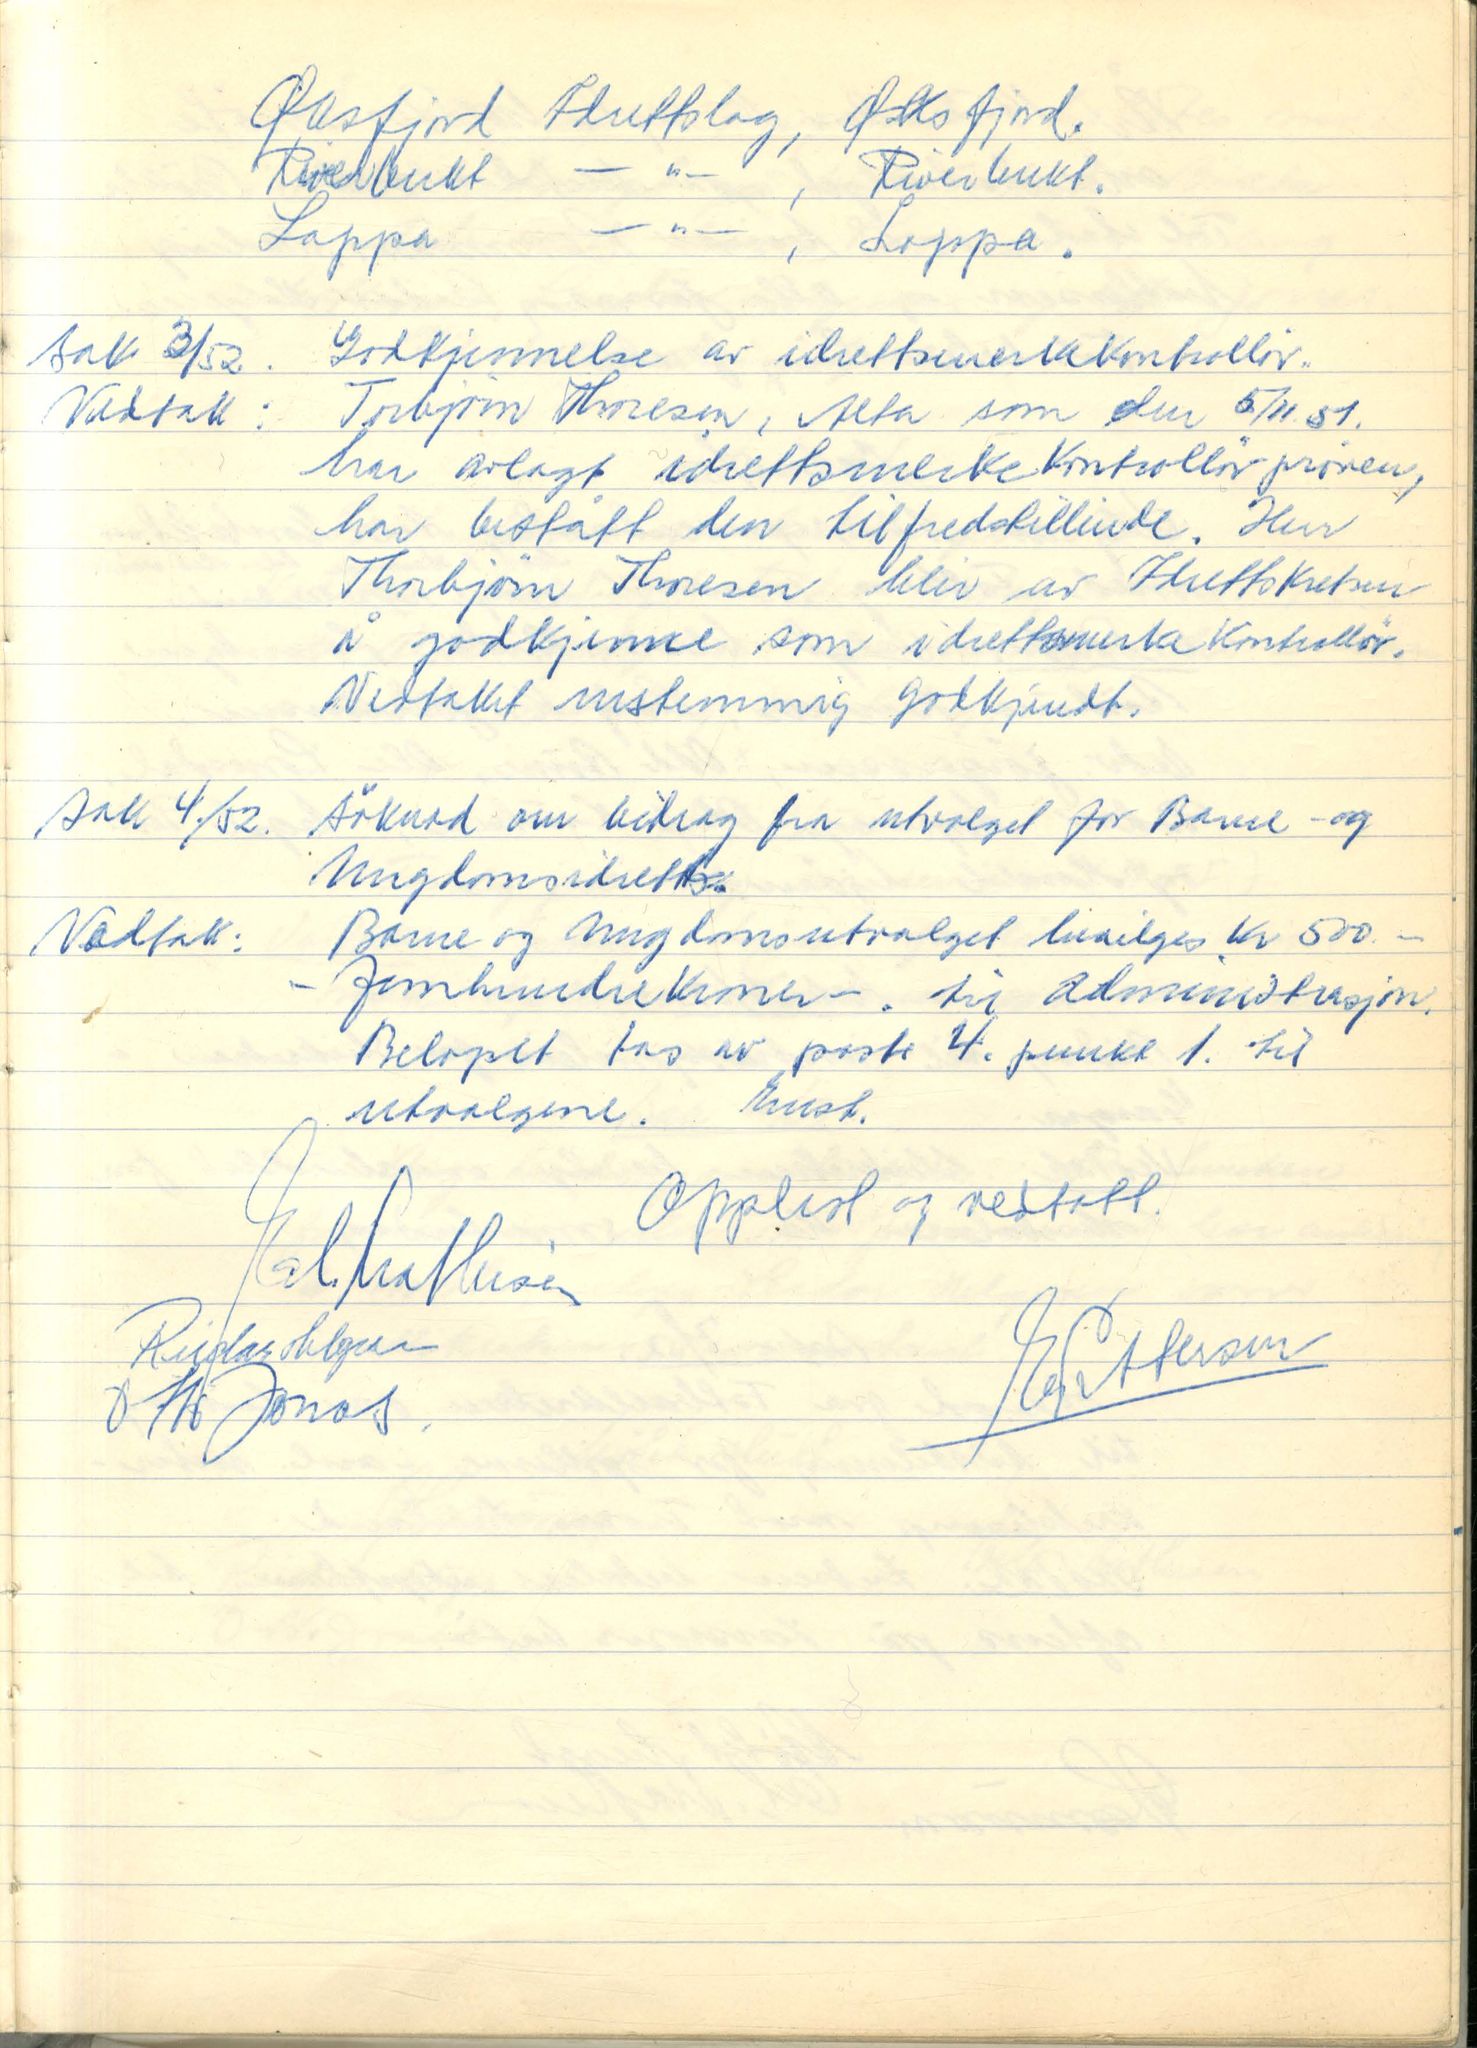 Øksfjord Idrettslag, Øksfjord.
Riverbukt — " — , Riverbukt.
Loppa — " — , Loppa.
Sak 3/52. Godkjennelse av idrettsmerkekontrollör.
Vedtak: Torbjörn Thoresen, Alta som den 5/11.51.
har avlagt idrettsmerkekontrollörpröven,
har bestått den tilfredstillende. Herr
Thorbjörn Thoresen blir av Idrettskretsen
å godkjenne som idrettsmerkekontrollör.
Vedtaket enstemmig godkjendt.
Sak 4/52. Söknad om bidrag fra utvalget for Barne- og
Ungdomsidrett.
Vedtak: Barne og Ungdomsutvalget bevilges kr 500.-
- Femhundrekroner -. til administrasjon.
Belöpet tas av post 4. punkt 1. til
utvalgene. Enst.
Opplest og vedtatt.
Mathisen
Reidar
Otto Jonas.
E. Pettersen